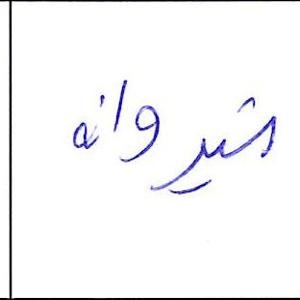 خیروانه